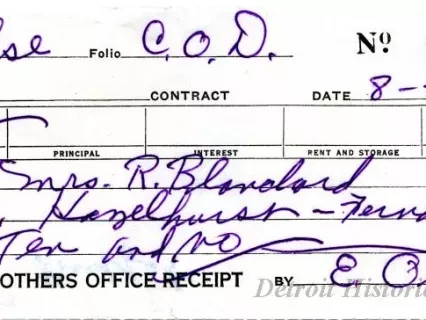 Folio C.O.D. Nº
CONTRACT DATE 8-
PRINCIPAL INTEREST RENT AND STORAGE
Mrs. R. Blanchard
Hazelhurst - Fernd
Ten and no
OTHERS OFFICE RECEIPT BY E.
Detroit Historic